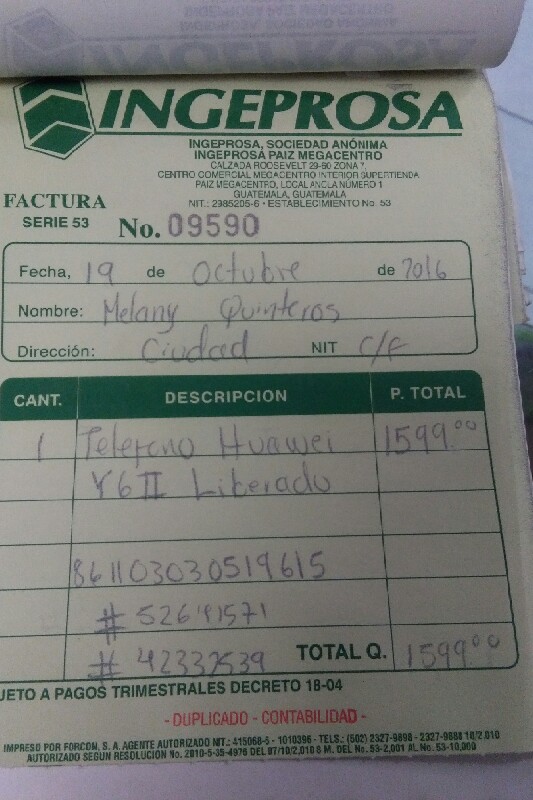 INGEPROSA
INGEPROSA, SOCIEDAD ANÓNIMA
INGEPROSA PAIZ MEGACENTRO
CALZADA ROOSEVELT 29-60 ZONA 7,
CENTRO COMERCIAL MEGACENTRO INTERIOR SUPERTIENDA
PAIZ MEGACENTRO, LOCAL ANCLA NÚMERO 1
GUATEMALA, GUATEMALA
NIT.: 2985205-6 • ESTABLECIMIENTO No. 53
FACTURA
SERIE 53 No. 09590
Fecha, 19 de Octubre de 2016
Nombre: Melany Quinteros
Dirección: Ciudad NIT C/F
CANT. DESCRIPCION P. TOTAL
1 Telefono Huawei 1599.00
Y6II Liberado
861103030519615
# 52641571
# 42337539 TOTAL Q. 1599.00
JETO A PAGOS TRIMESTRALES DECRETO 18-04
- DUPLICADO - CONTABILIDAD -
IMPRESO POR FORCON, S. A. AGENTE AUTORIZADO NIT.: 415068-5 - 1010396 - TELS.: (502) 2327-9898 - 2327-9888 18/2,010
AUTORIZADO SEGUN RESOLUCION No. 2010-5-35-4976 DEL 07/10/2,010 8 M. DEL No. 53-2,001 AL No. 53-10,000